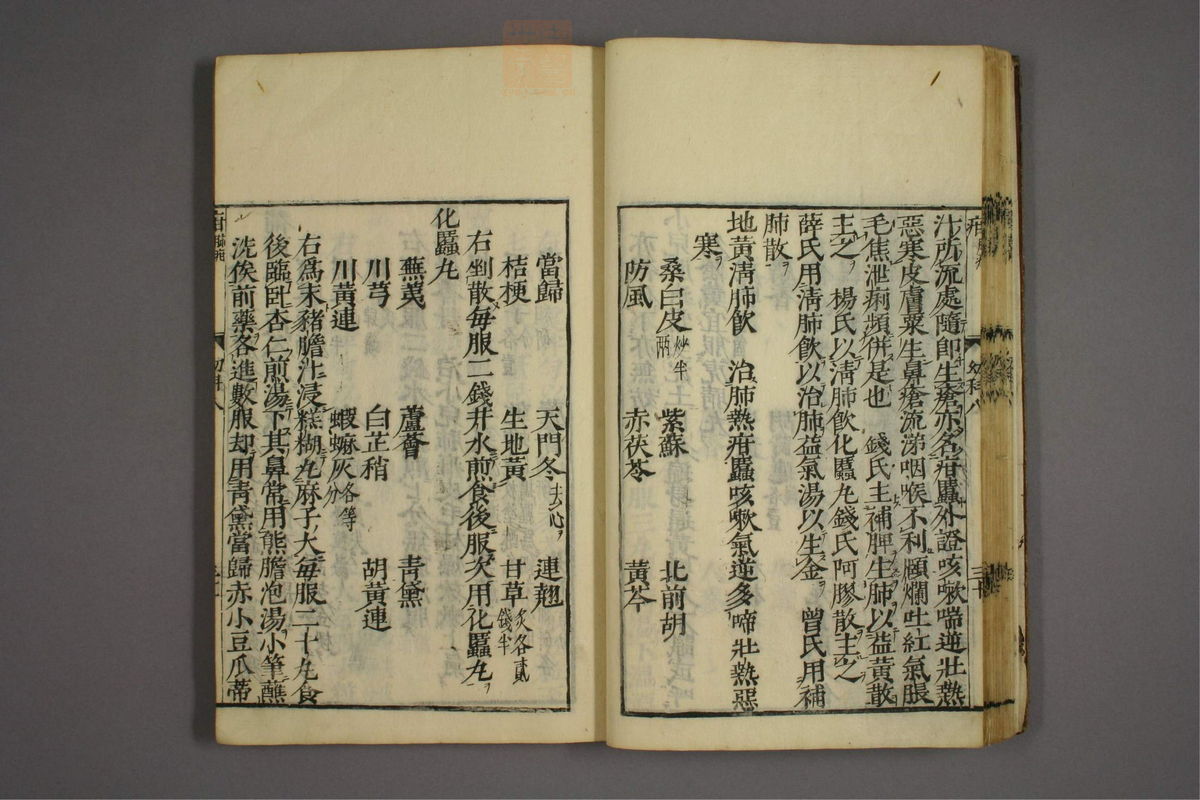 汁所流處隨即生瘡亦名疳䘌外證咳嗽喘逆壯熱
惡寒皮膚粟生鼻瘡流涕咽喉不利頤爛吐紅氣脹
毛焦泄痢頻併是也　錢氏主補脾生肺以益黃散
主之　楊氏以淸肺飮化䘌丸錢氏阿膠散主之
薛氏用淸肺飮以治肺益氣湯以生金　曾氏用補
肺散
地黃淸肺飮　治肺熱疳䘌咳嗽氣逆多啼壯熱惡
寒
桑白皮炒半兩　紫蘇　北前胡
防風　赤茯苓　黃芩
當歸　天門冬去心　連翹
桔梗　生地黃　甘草炙各貳錢半
右剉散每服二錢井水煎食後服次用化䘌丸
化䘌丸
蕪荑　蘆薈　青黛
川芎　白芷稍　胡黃連
川黃連　蝦蟆灰各等分
右爲末豬膽汁浸糕糊丸麻子大每服二十丸食
後臨臥杏仁煎湯下其鼻常用熊膽泡湯小筆蘸
洗俟前藥各進數服却用青黛當歸赤小豆瓜蒂
幼科八
三十